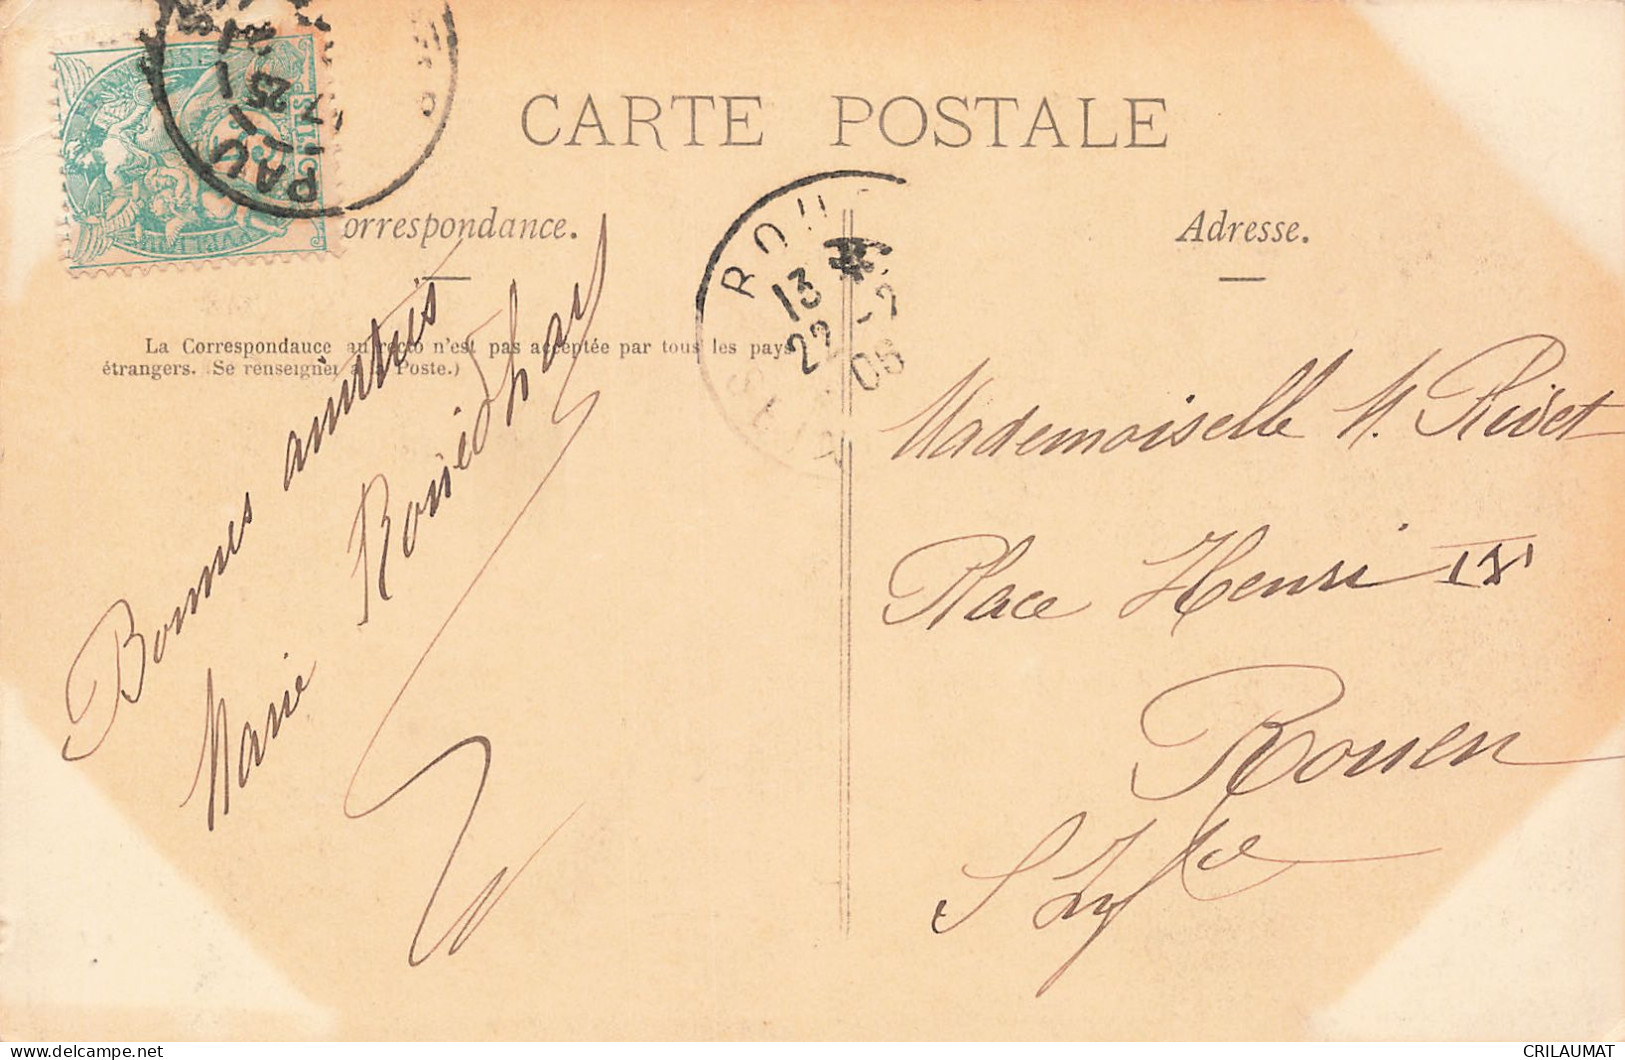 CARTE POSTALE
orrespondance.
Adresse.
La Correspondance au recto n'est pas acceptée par tous les pays
étrangers. (Se renseigner à la Poste.)
PAU
ROU
13
22 -2
06
Bonnes amitiés
Marie
Mademoiselle M. Rivet
Place Henri IV
Rouen
S Infre
CRILAUMAT